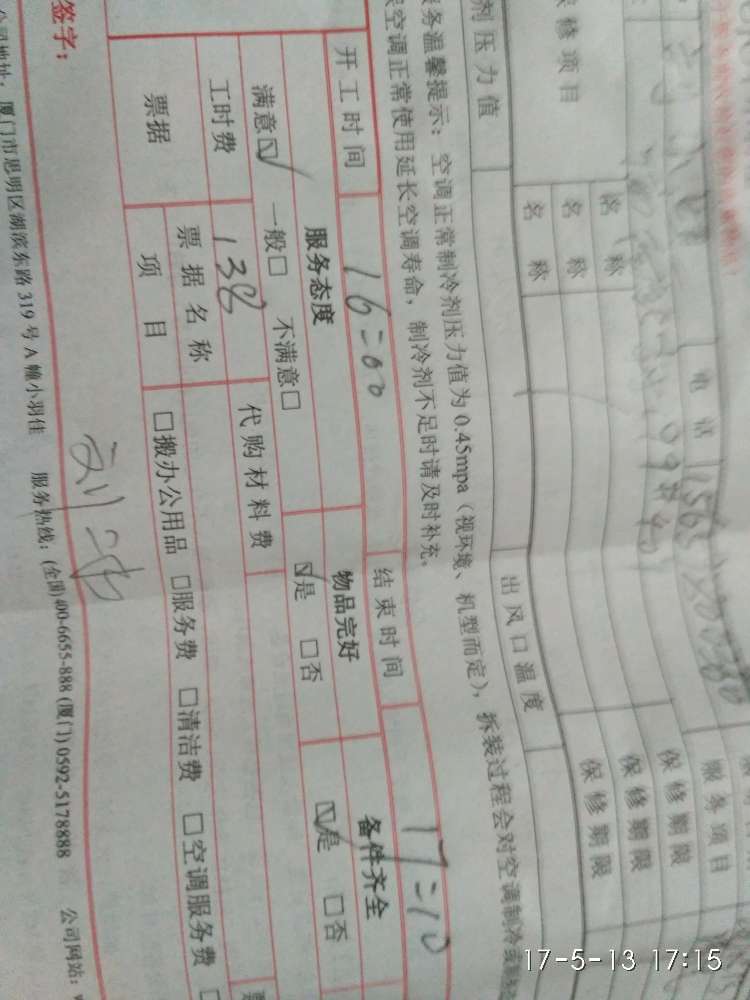 电话
服务项目
保修项目
名称
保修期限
名称
保修期限
名称
保修期限
剂压力值
出风口温度
服务温馨提示：空调正常制冷剂压力值为0.45mpa（视环境、机型而定），拆装过程会对空调制冷
空调正常使用延长空调寿命，制冷剂不足时请及时补充。
开工时间 16:00 结束时间 17:10
服务态度 物品完好 备件齐全
满意☑ 一般□ 不满意□ ☑是 □否 ☑是 □否
工时费 138 代购材料费
票据 票据名称
项目 □搬办公用品 □服务费 □清洁费 □空调服务费
签字：
公司地址：厦门市思明区湖滨东路319号A幢小羽佳 服务热线：(全国)400-6655-888 (厦门) 0592-5178888 公司网站：
17-5-13 17:15